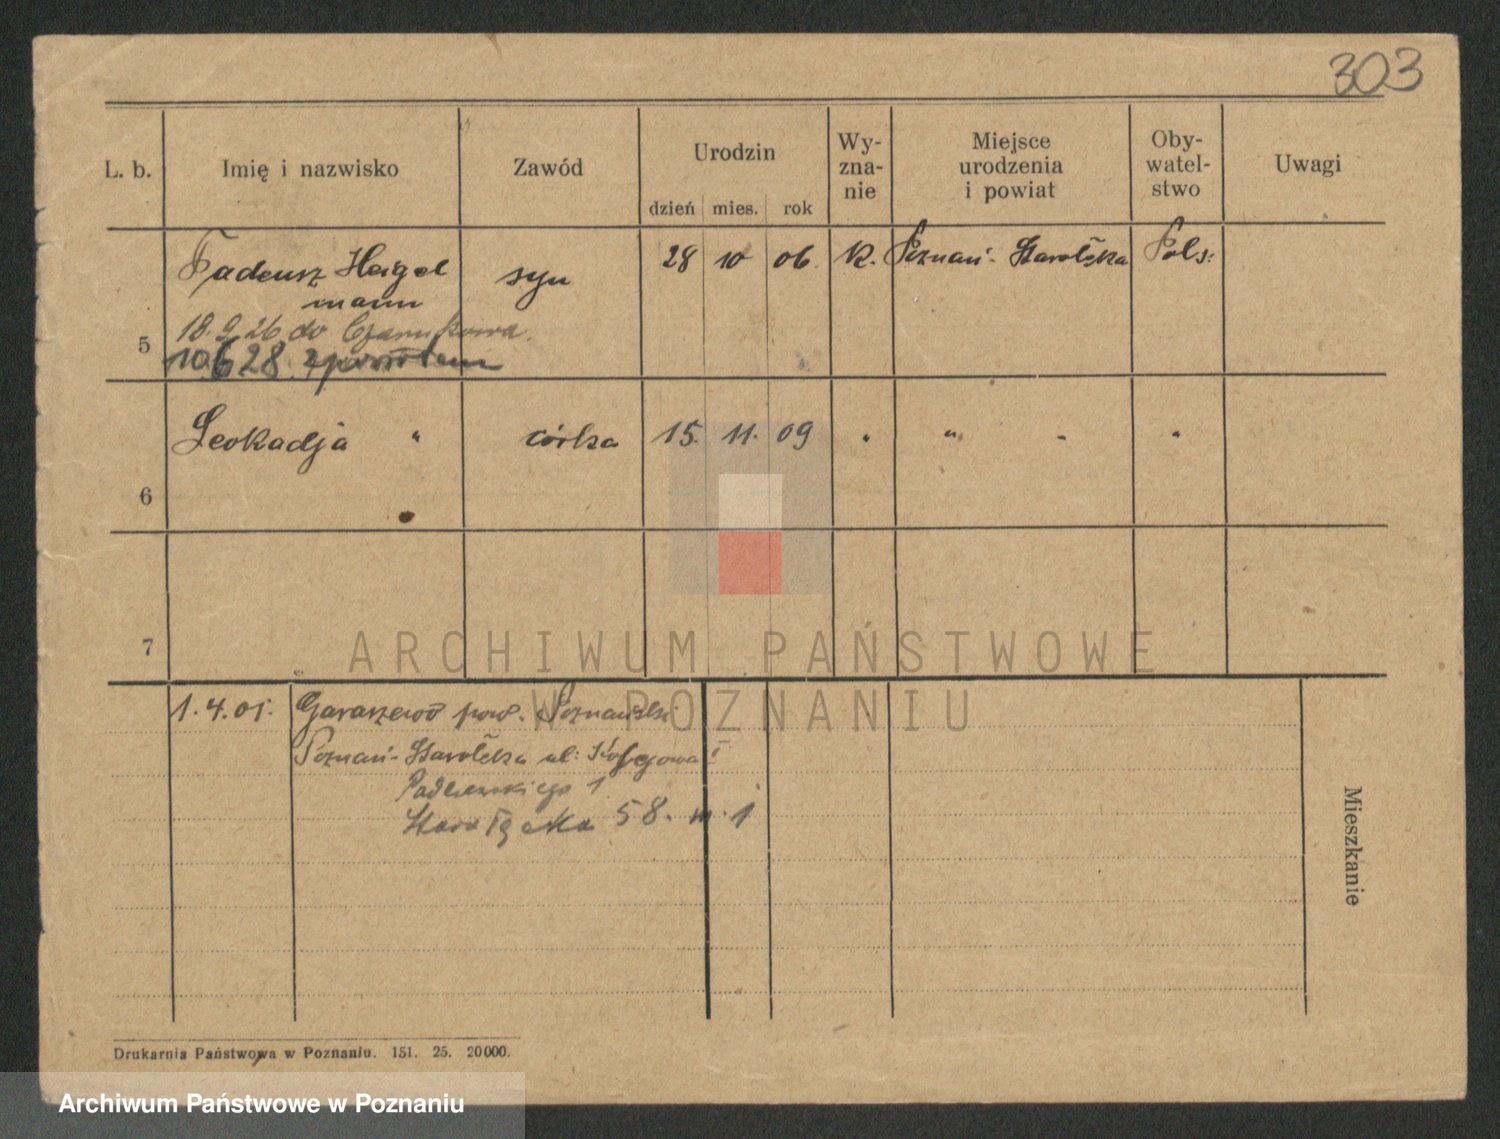 303
L. b. Imię i nazwisko Zawód Urodzin dzień mies. rok Wy-zna-nie Miejsce urodzenia i powiat Oby-watel-stwo Uwagi
5 Tadeusz Heigel syn 28 10 06. K. Poznań-Starołęka Pols:
mann
18. 9. 26 do Czarnkowa.
10.6 28 zpowrotem
6 Leokadja " córka 15. 11. 09 " " " "
7
ARCHIWUM PAŃSTWOWE
W POZNANIU
1. 4. 01. Garaszewo pow. Poznański
Poznań-Starołęka ul:
1
Starołęka 58. m. 1
Mieszkanie
Drukarnia Państwowa w Poznaniu. 151. 25. 20000.
Archiwum Państwowe w Poznaniu